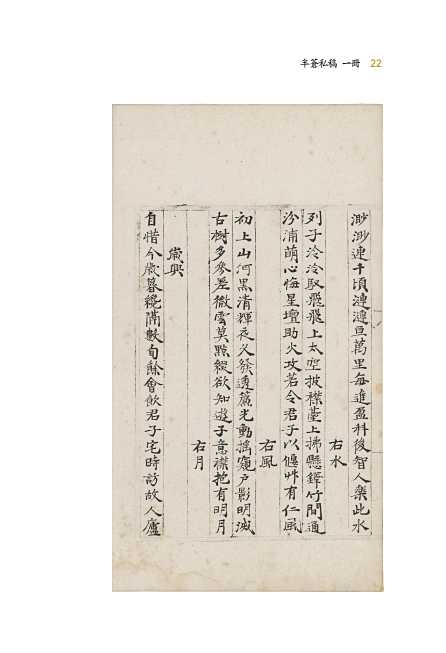 半蒼私稿 一冊 22
渺渺連千頃漣漣亘萬里每進盈科後智人樂此水
右水
列子泠泠馭飛飛上太空披襟臺上拂懸鐸竹間通
汾浦萌心悔星壇助火攻若令君子以偃艸有仁風
右風
初上山河黑清輝夜久發透簾光動搖窺戶影明滅
古樹多參差微雲莫點綴欲知遊子意襟抱有明月
右月
歲興
自惜今歲暮纔隔數旬餘會飲君子宅時訪故人廬